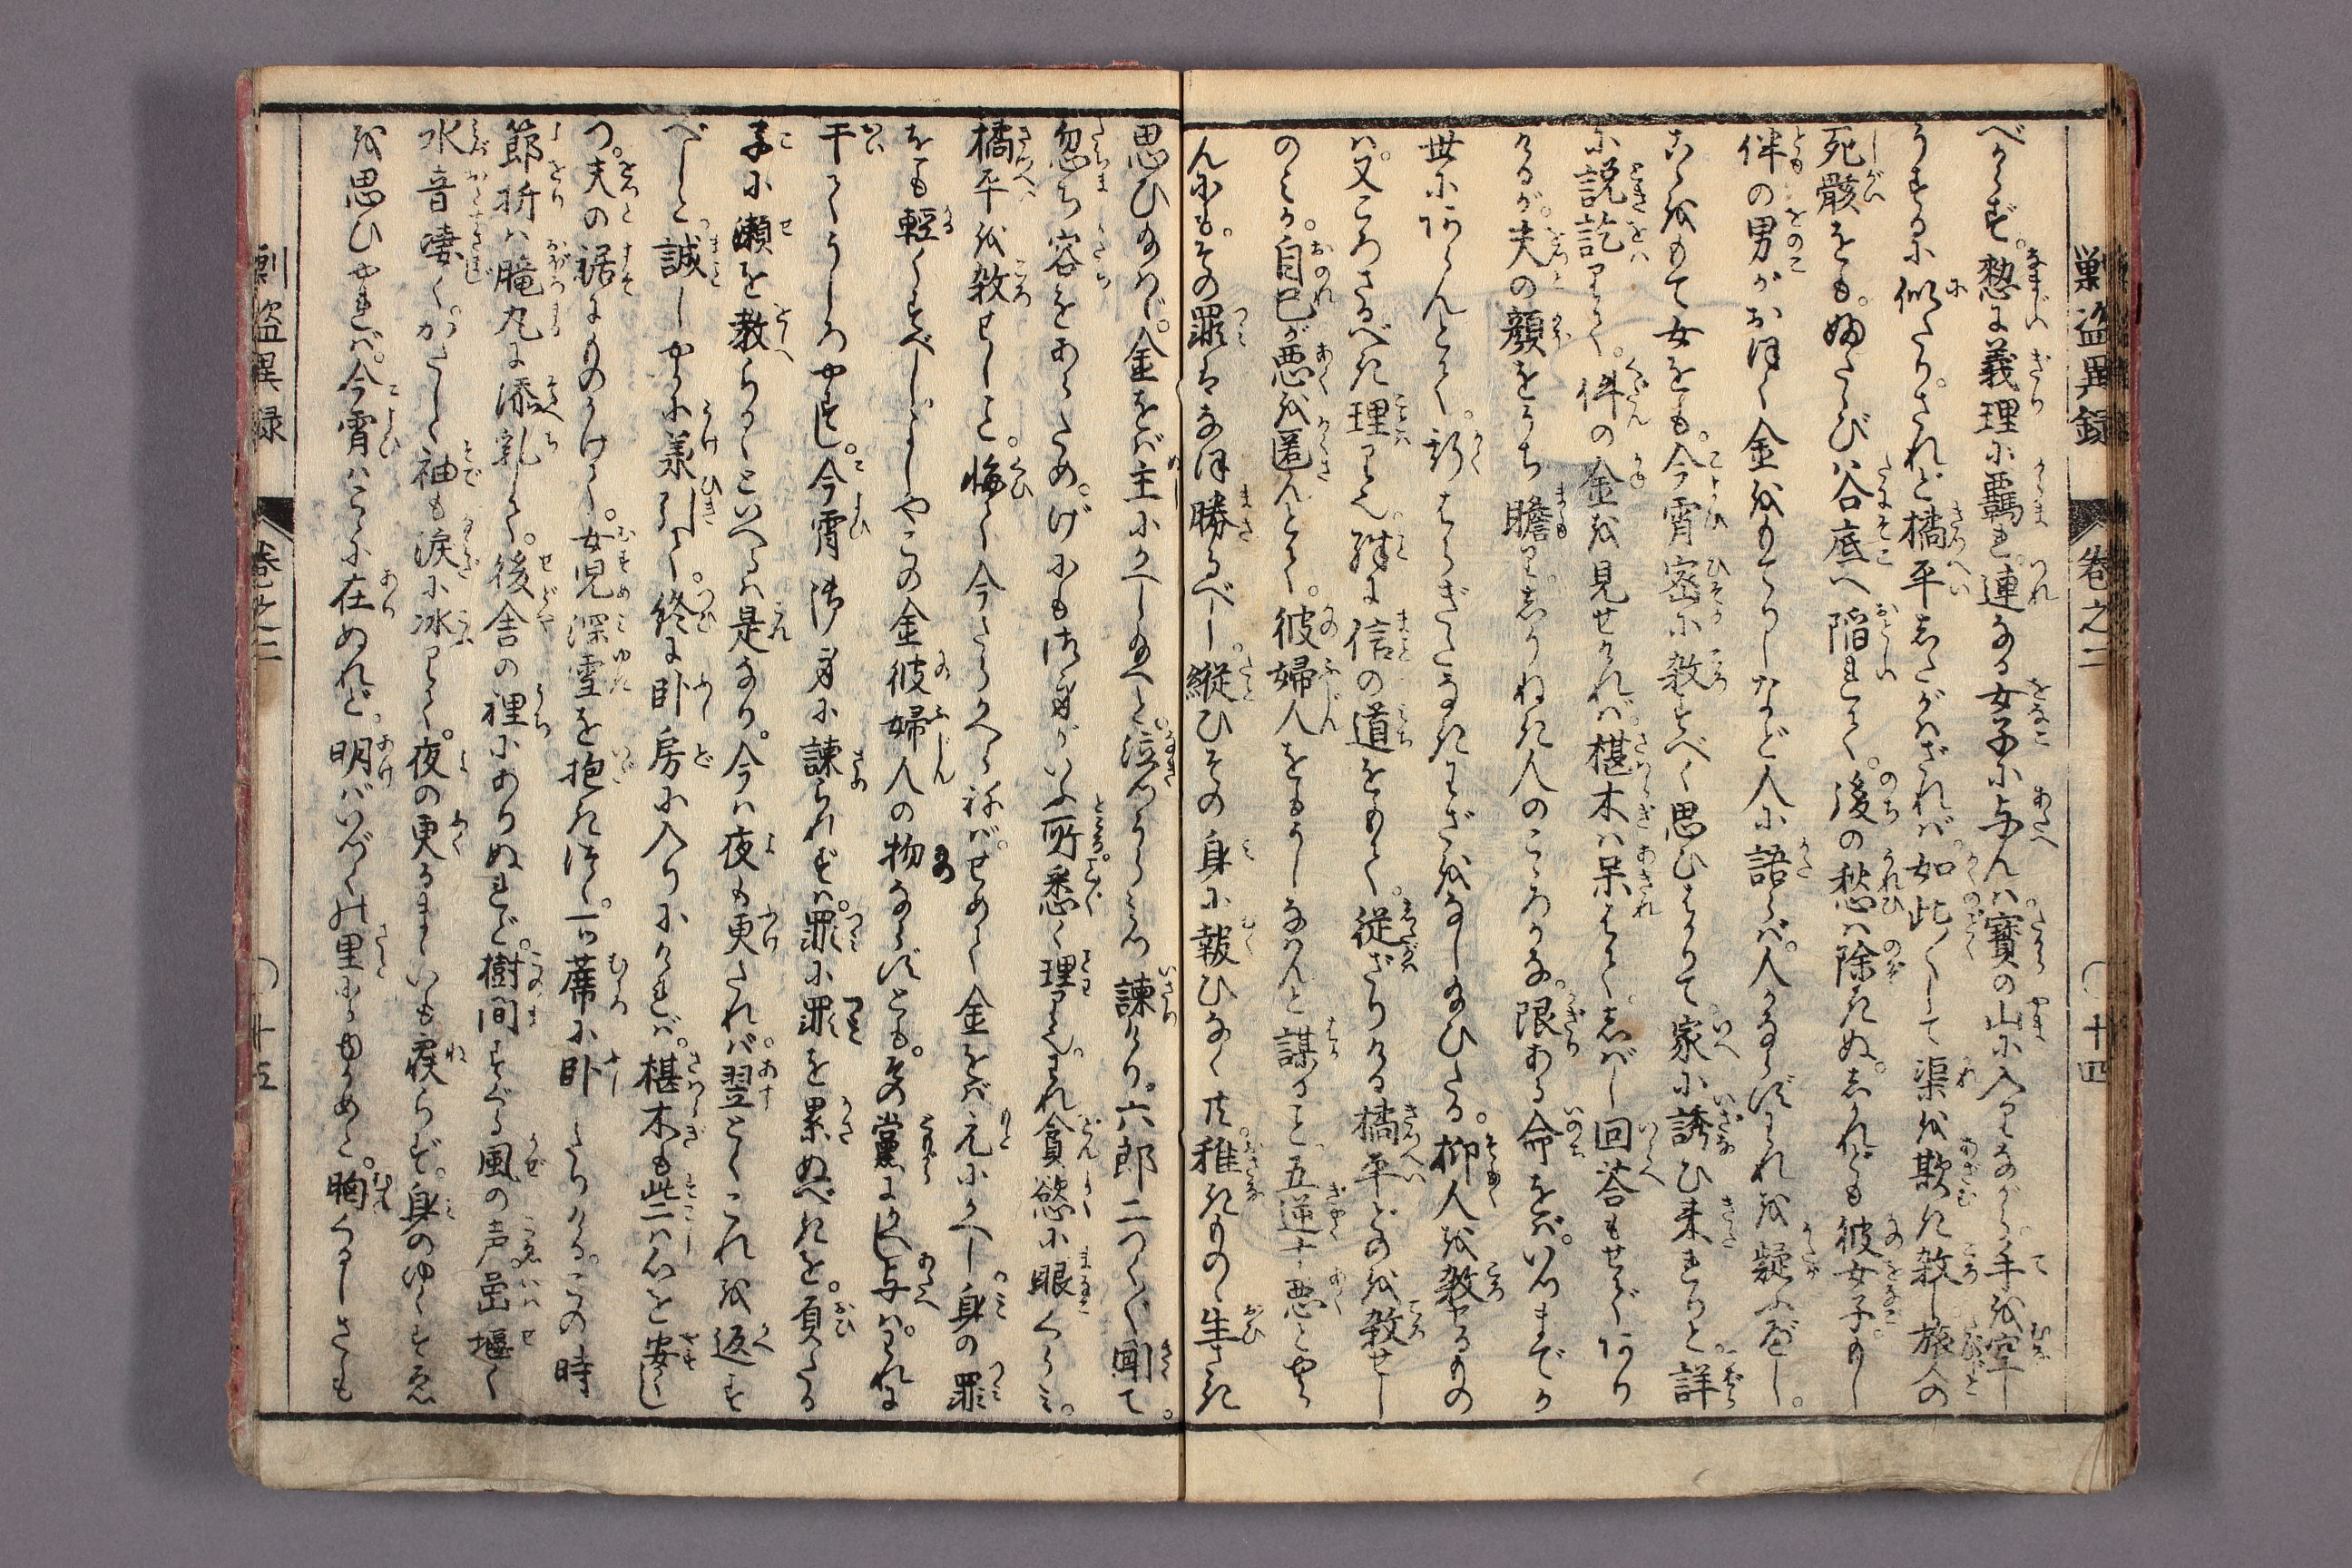 巣盗異録 巻之二 〇十四
べからず。愁に義理に羈れ。連なる女子に与んハ。寶の山に入りながら。手を空し
うするに似たり。されど橘平したがハざれバ。如此〱して渠を欺き殺し。旅人の
死骸をも。ふたゝび谷底へ陥れて。後の愁ハ除きぬ。しかれども彼女子。もし
伴の男がおほく金をもてりしなど人に語らバ。人かならずわれを疑ふべし。
こゝをもて女をも。今宵密に殺すべく思ひはかりて。家に誘ひ来れりと。詳
に説訖りて。件の金を見せけれバ。椹木ハ呆はてゝ。しばし回答もせであり
けるが。夫の顔をうち瞻り。しりねき人のこゝろかな。限ある命をバ。いつまでか
世にあらんとて。影はらぎたなきわざをなし給ひたる。抑人を殺せるもの
ハ。又ころさるべき理りを。殊に信の道をもて。従ざりける橘平どのを殺せし
のミか。自己が悪を匿んとて。彼婦人をもうしなハんと謀ること。五逆十悪とやら
んにも。その罪ハなほ勝るべし。縦ひその身に報ひなく共。稚きものゝ生さき
思ひ給ハゞ。金をバ主にかへし給へと。泣つうらミつ諫けり。六郎二つく〲聞て。
忽ち容をあらため。げにも御身がいふ所。悉く理りえ。われ貪慾に眼くらミ。
橘平を殺せしこと。悔て今さらかへらねバ。せめて金をバ元にかへし。身の罪
をも軽くすべし。よしやこの金彼婦人の物ならずとも。その黨にかへし与バ。われに
干てうしろやすし。今宵御身に諫られずハ。罪に罪を累ぬべきを。負たる
子に瀬を教らるゝといへるハ是なり。今ハ夜も更たれバ。翌とくこれを返す
べしと。誠しやかに承引て。終に卧房に入りにけれバ。椹木も些ハ心を安じ
つ。夫の裾にものうちかけて。女児深雪を抱きつゝ。一ツ席に卧したりける。この時
節折ハ朧丸に添乳して。後舎の裡にありぬれど。樹間すぐる風の声。嵒堰く
水音凄く。かたしく袖も涙に氷りて。夜の更るまでいも寐られず。身のゆくすゑ
を思ひやれバ。今宵ハこゝに在ぬれど。明バいづくの里にかゆかめと。胸くるしさも
劉盗異録 巻之二 〇十五